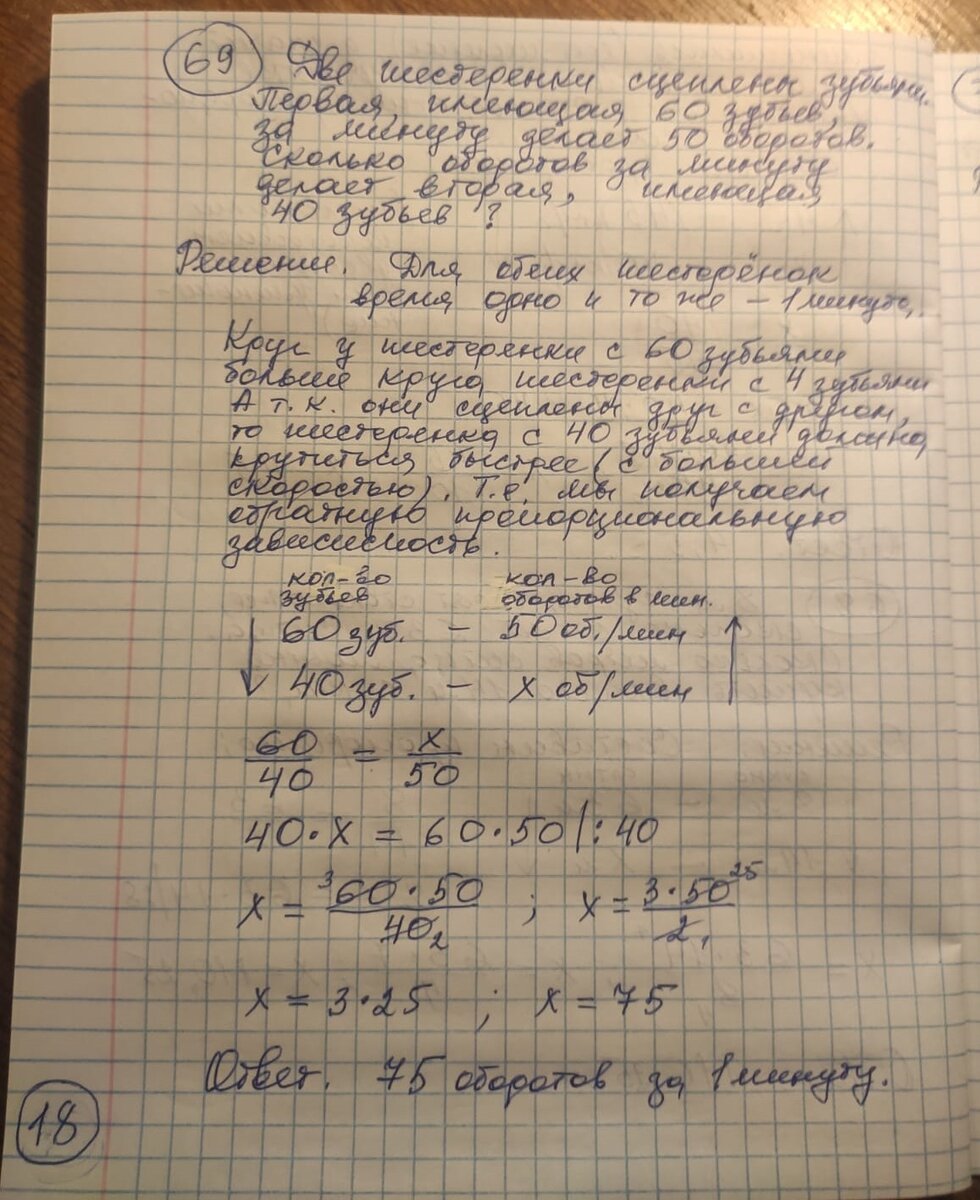 69 Две шестеренки сцеплены зубьями.
Первая, имеющая 60 зубьев,
за минуту делает 50 оборотов.
Сколько оборотов за минуту
делает вторая, имеющая
40 зубьев ?
Решение. Для обеих шестерёнок
время одно и то же – 1 минута.
Круг у шестеренки с 60 зубьями
больше круга шестеренки с 4 зубьями
А т.к. они сцеплены друг с другом,
то шестеренка с 40 зубьями должна
крутиться быстрее (с большей
скоростью). Т.е. мы получаем
обратную пропорциональную
зависимость.
кол-во кол-во
зубьев оборотов в мин.
↓ 60 зуб. – 50 об./мин ↑
40 зуб. – x об/мин
60/40 = x/50
40·x = 60·50 |:40
x = ³60·50/40₂ ; x = 3·50²⁵/2₁
x = 3·25 ; x = 75
Ответ. 75 оборотов за 1 минуту.
18